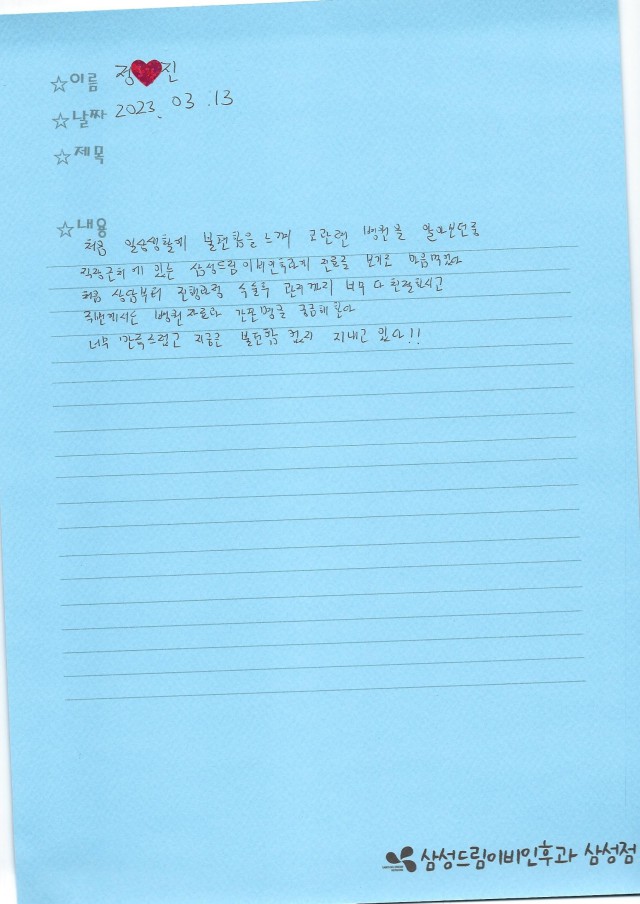 ☆이름 정♥진
☆날짜 2023. 03. 13
☆제목
☆내용
처음 일상생활에 불편함을 느껴 코관련 병원을 알아보던중
직장근처에 있는 삼성드림이비인후과에 진료를 보기로 마음먹었다
처음 상담부터 진행과정 수술후 관리까지 너무 다 친절하시고
주변에서는 병원 자료와
너무 만족스럽고 지금은 불편함 없이 지내고 있다!!
삼성드림이비인후과 삼성점